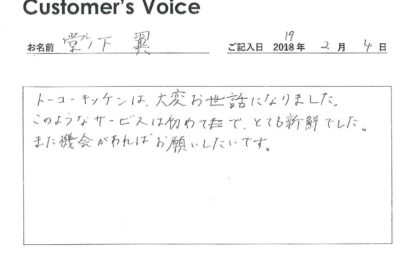 Customer's Voice
お名前 堂ノ下 翼 ご記入日 2018年 19 2月 4日
トーコーキッケンは、大変お世話になりました。
このようなサービスは初めてで、とても新鮮でした。
また機会があればお願いしたいです。